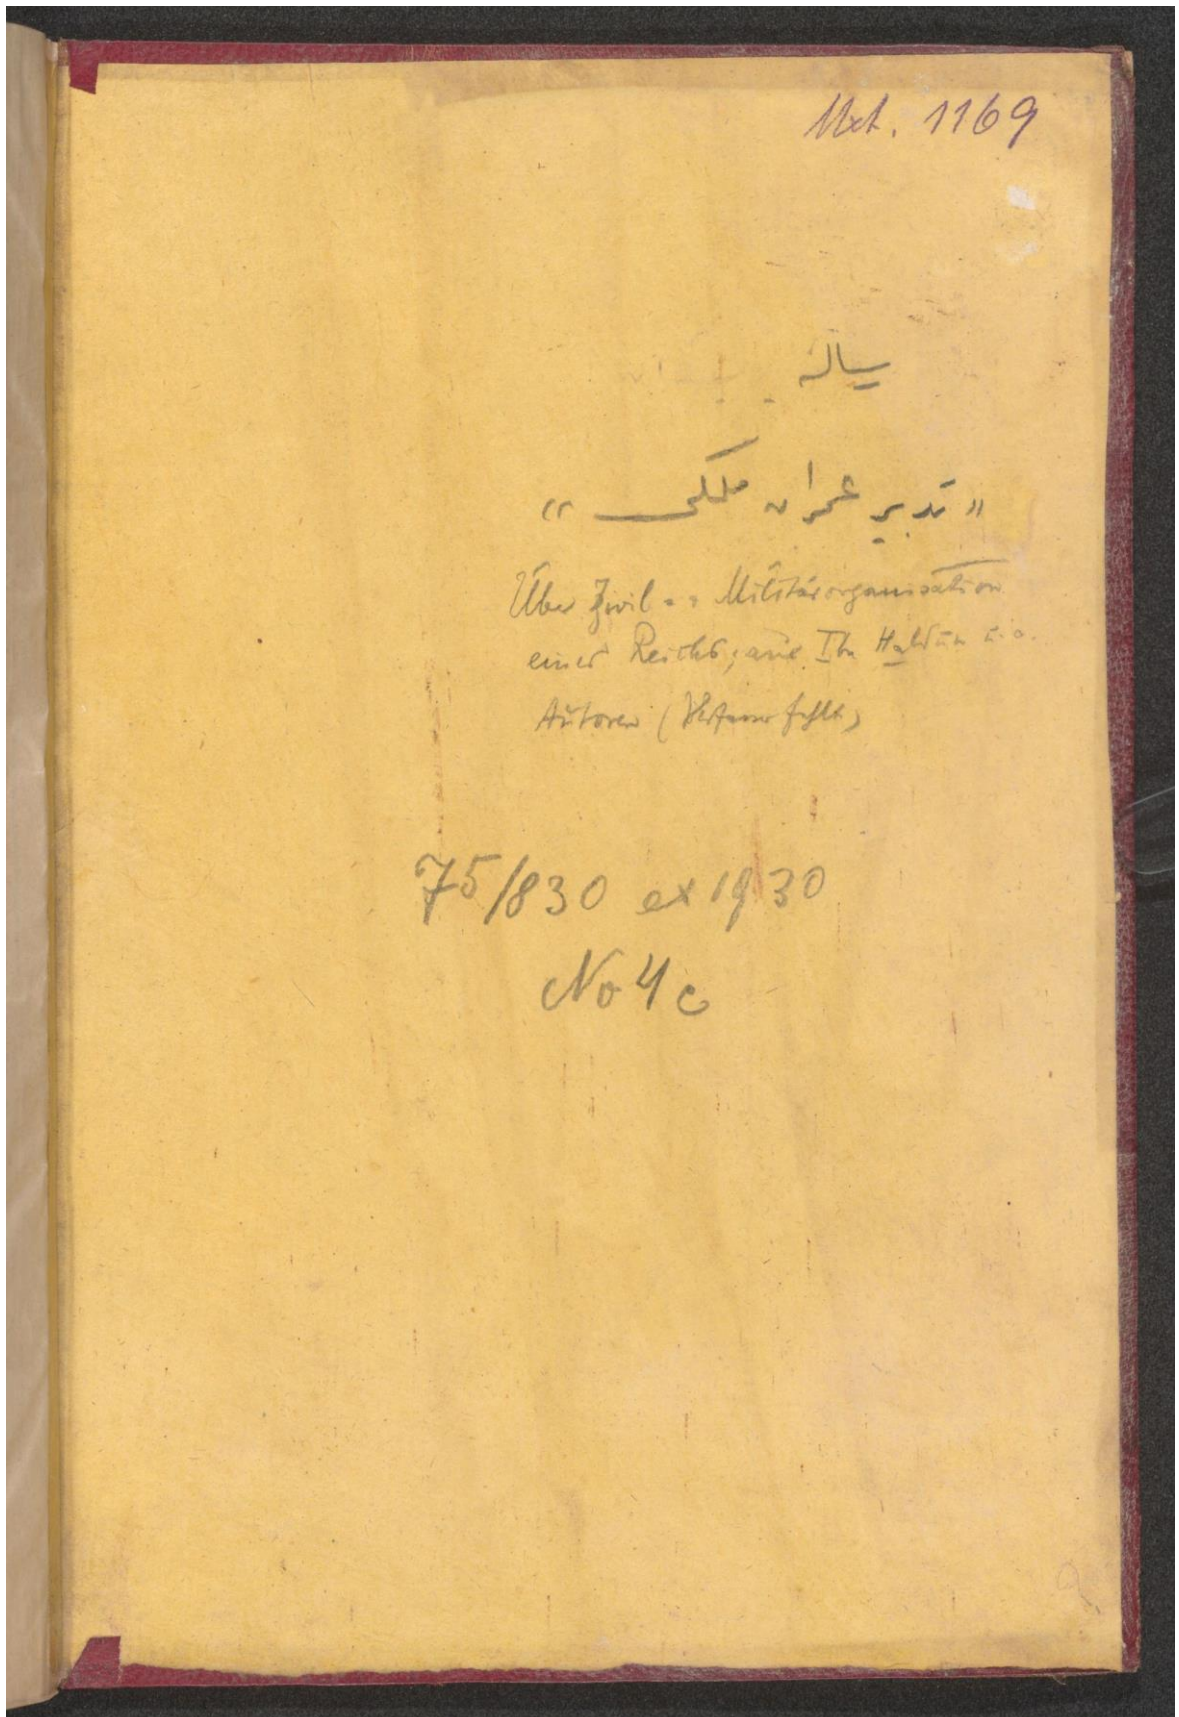 Mxt. 1169
رسالة
„ تدبير عمران ملكى “
Über Zivil u. Militärorganisation
eines Reichs, aus Ibn Haldun u. a.
Autoren (Verfasser fehlt)
75/830 ex 1930
No 4 c